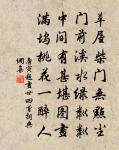 草屋柴门无点尘
门前溪水绿粼粼
中间有甚堪图画
满坞桃花一醉人
唐寅题画廿四首
词典网集